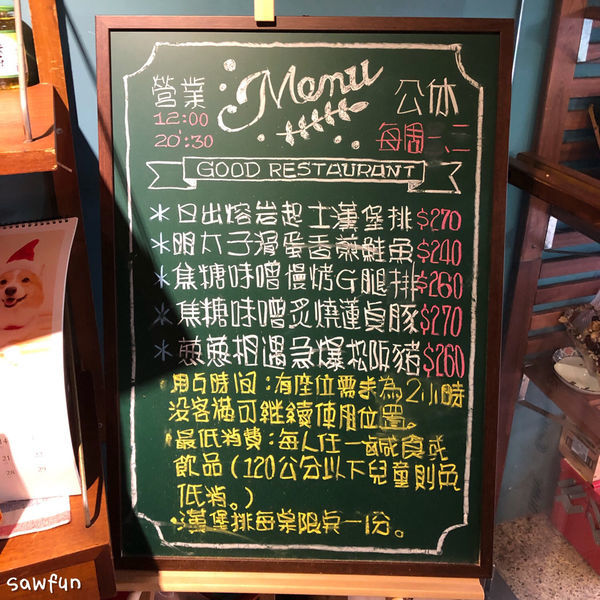 Menu
營業
12:00
20:30
公休
每週一、二
GOOD RESTAURANT
*日出熔岩起士漢堡排$270
*明太子滑蛋香煎鮭魚$240
*焦糖味噌慢烤G腿排$260
*焦糖味噌炙燒蓮貞豚$270
*蔥蔥相遇急爆松阪豬$260
用餐時間:有座位需求為2小時
没客滿可繼續使用位置。
最低消費:每人任一鹹食或
飲品(120公分以下兒童則免
低消。)
漢堡排每桌限点一份。
sawfun